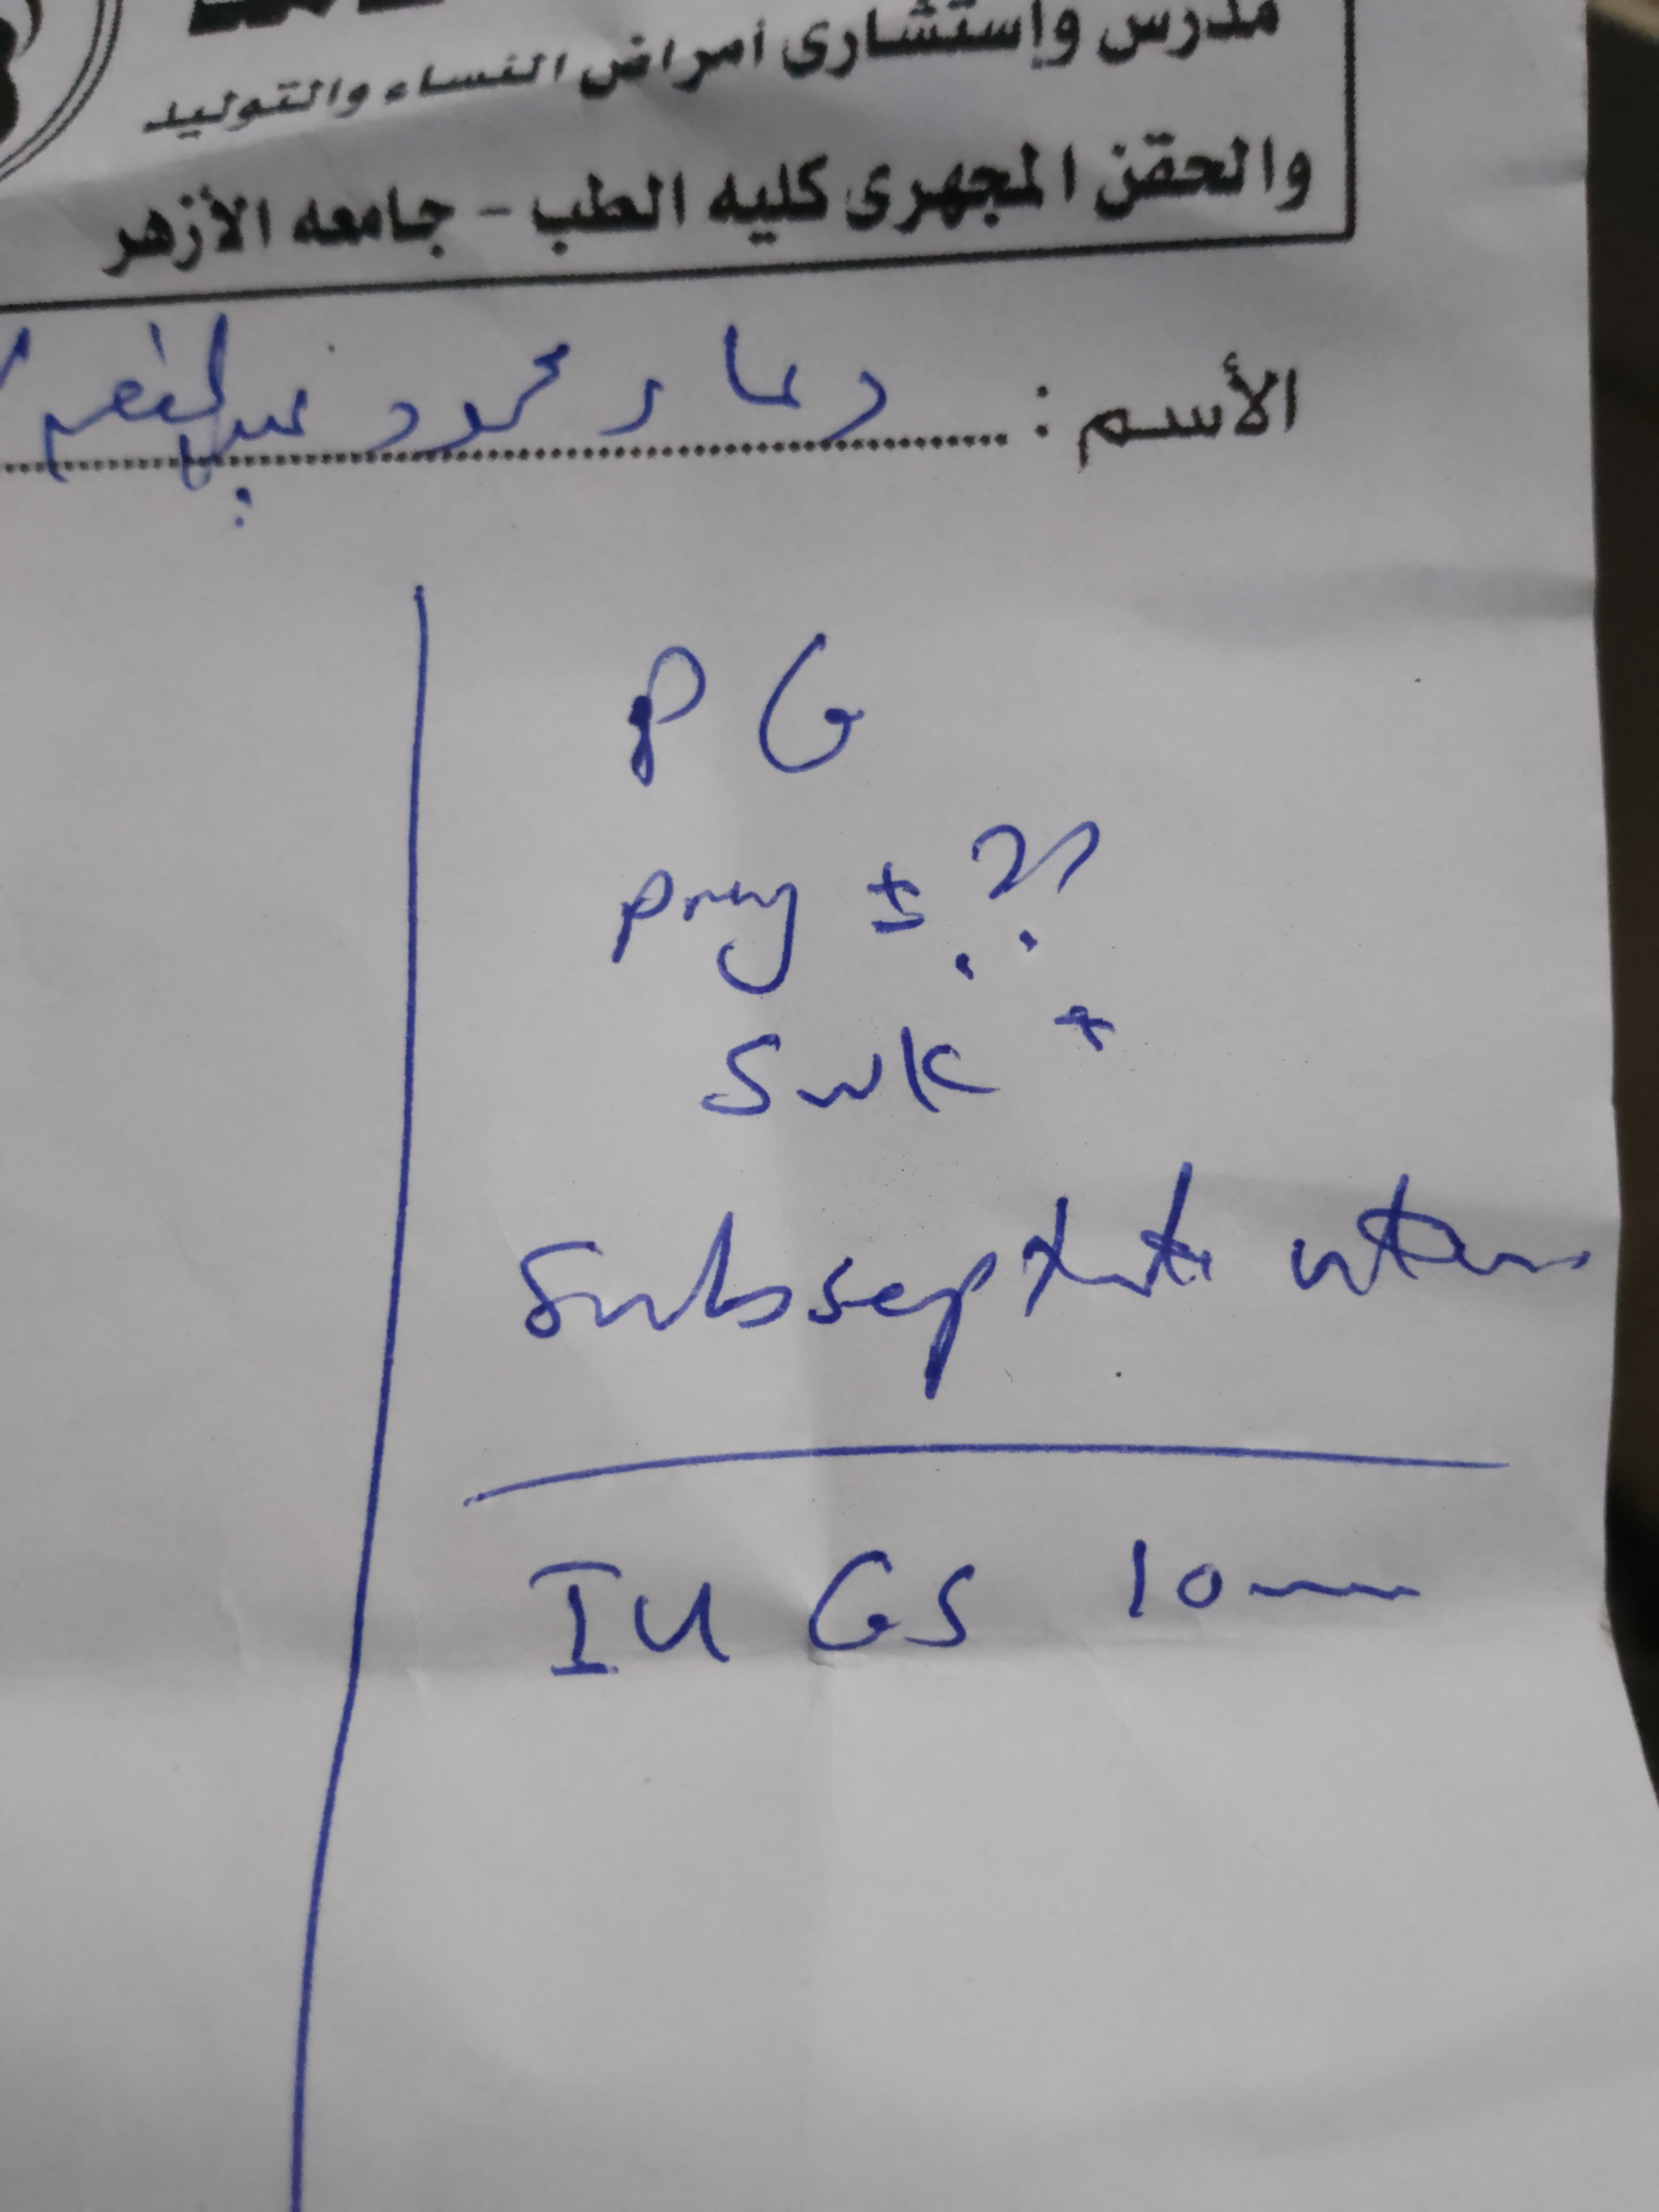 مدرس وإستشارى أمراض النساء والتوليد
والحقن المجهرى كليه الطب - جامعه الأزهر
الأسم : دعاء محمود عبدالمنعم
PG
preg ± ??
5wk +
Subseptate uterus
IU GS 10mm